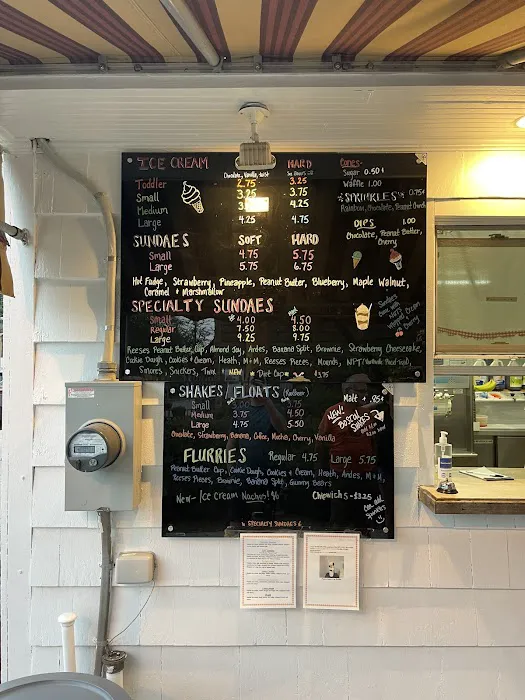 ICE CREAM HARD
Chocolate, Vanilla, twist
Toddler 2.75 3.25
Small 3.25 3.75
Medium 4.25
Large 4.25 4.75
Cones-
Sugar 0.50
Waffle 1.00
SPRINKLES 0.75
Rainbow, Chocolate, Peanut
DIPS 1.00
Chocolate, Peanut Butter,
Cherry
SUNDAES SOFT HARD
Small 4.75 5.75
Large 5.75 6.75
Hot Fudge, Strawberry, Pineapple, Peanut Butter, Blueberry, Maple Walnut,
Caramel & Marshmallow
SPECIALTY SUNDAES
Small 4.00 4.50
Regular 7.50 8.00
Large 9.25 9.75
Reeses Peanut Butter Cup, Almond Joy, Andes, Banana Split, Brownie, Strawberry Cheesecake,
Cookie Dough, Cookies & Cream, Heath, M+M, Reeses Pieces, Mounds,
Smores, Snickers, Twix NEW Dirt Cup $3.75
SHAKES/FLOATS (Rootbeer)
Malt + .85¢
Small 3.75
Medium 3.75 4.50
Large 4.75 5.50
NEW!
BOSTON
SHAKES
Chocolate, Strawberry, Banana, Coffee, Mocha, Cherry, Vanilla
FLURRIES Regular 4.75 Large 5.75
Peanut Butter Cup, Cookie Dough, Cookies & Cream, Heath, Andes, M+M,
Reeses Pieces, Brownie, Banana Split, Gummy Bears
New- Ice Cream Nachos! $6 Chipwich's - $3.25
Can add
Sprinkles
SPECIALTY SUNDAES